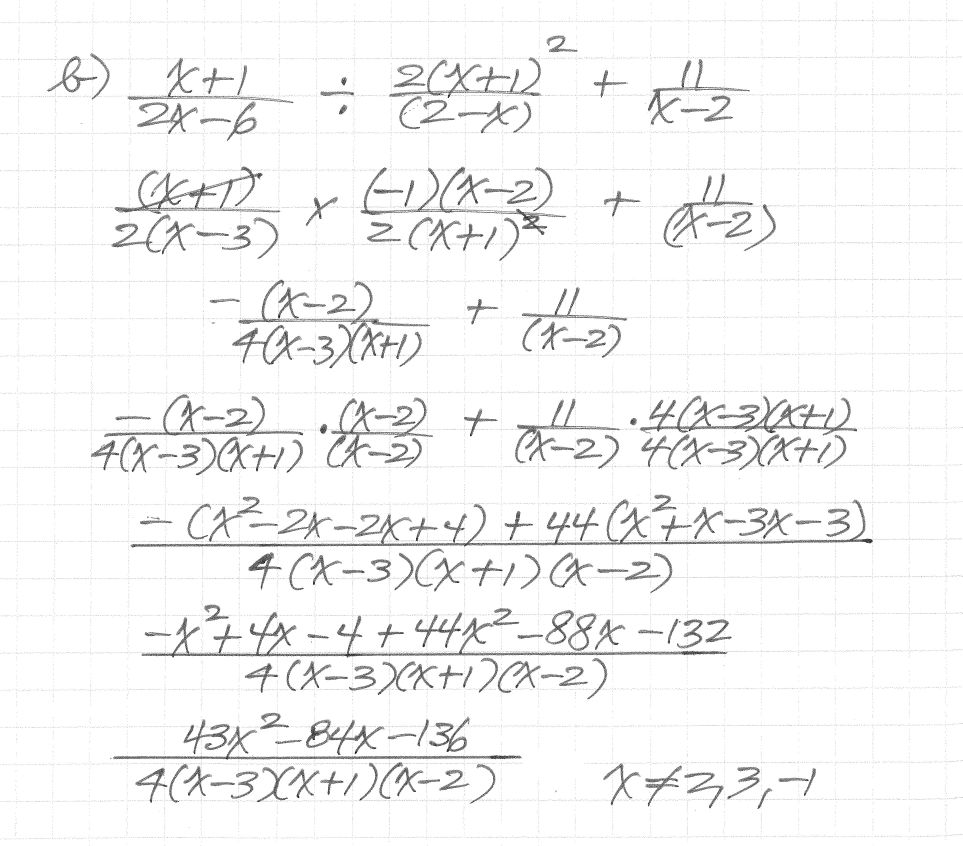 b) (x+1)/(2x-6) ÷ (2(x+1)²)/((2-x)) + 11/(x-2)
(x+1)/(2(x-3)) × ((-1)(x-2))/(2(x+1)²) + 11/((x-2))
-(x-2)/(4(x-3)(x+1)) + 11/((x-2))
-(x-2)/(4(x-3)(x+1)) · (x-2)/(x-2) + 11/((x-2)) · (4(x-3)(x+1))/(4(x-3)(x+1))
(-(x²-2x-2x+4) + 44(x²+x-3x-3))/(4(x-3)(x+1)(x-2))
(-x²+4x-4+44x²-88x-132)/(4(x-3)(x+1)(x-2))
(43x²-84x-136)/(4(x-3)(x+1)(x-2)) x≠2,3,-1